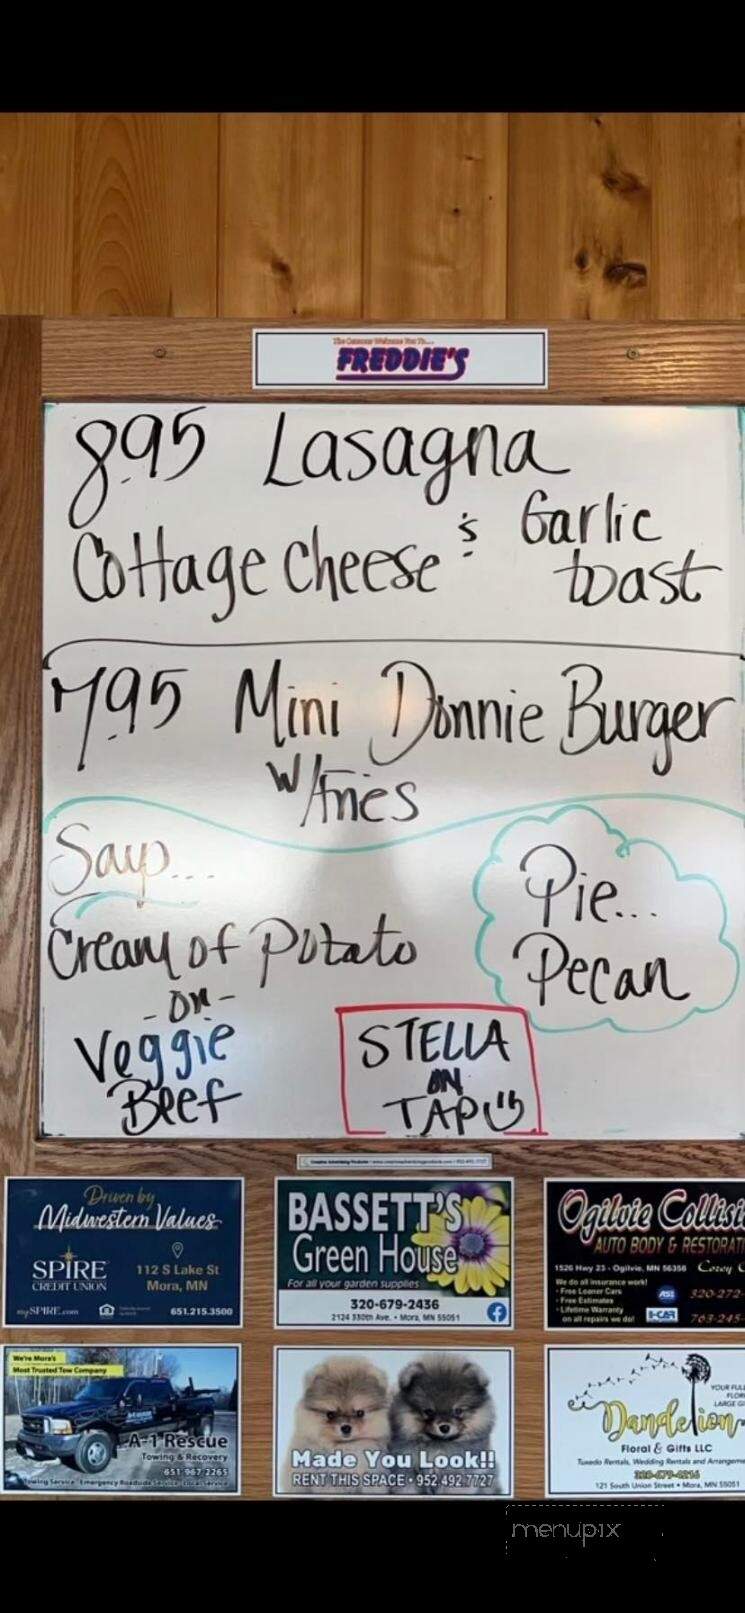 The Corner Welcomes You To...
FREDDIE'S
8.95 Lasagna
Cottage cheese & Garlic toast
7.95 Mini Donnie Burger
w/fries
Soup...
Cream of Potato
-or-
Veggie
Beef
Pie...
Pecan
STELLA
ON
TAP
Driven by
Midwestern Values
SPIRE
CREDIT UNION
112 S Lake St
Mora, MN
mySPIRE.com
651.215.3500
BASSETT'S
Green House
For all your garden supplies
320-679-2436
2124 330th Ave. • Mora, MN 55051
Ogilvie Collisi
AUTO BODY & RESTORATI
1526 Hwy 23 - Ogilvie, MN 56358 Corey
We do all insurance work!
• Free Loaner Cars
• Free Estimates
• Lifetime Warranty
on all repairs we do!
ASE
I-CAR
320-272-
763-245-
We're Mora's
Most Trusted Tow Company
A-1 Rescue
Towing & Recovery
651 967 2265
Towing Service Emergency Roadside Service
Made You Look!!
RENT THIS SPACE • 952.492.7727
YOUR FULL
FLOR
LARGE G
Dandelion
Floral & Gifts LLC
Tuxedo Rentals, Wedding Rentals and Arrangeme
121 South Union Street • Mora, MN 55051
menupix